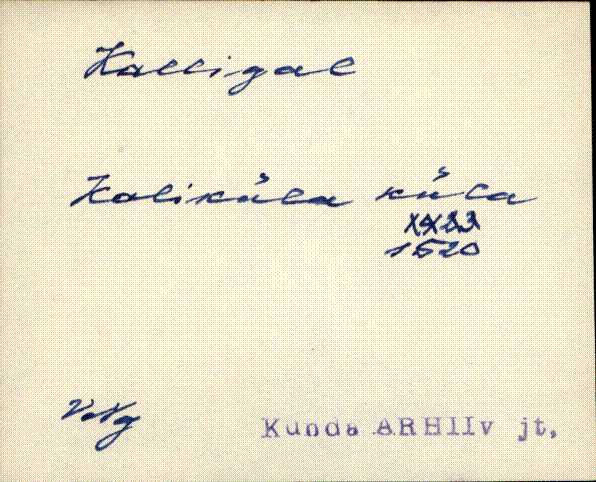 Kalligal
Kaliküla küla
1520
V.Ng
Kunda ARHIIv jt.